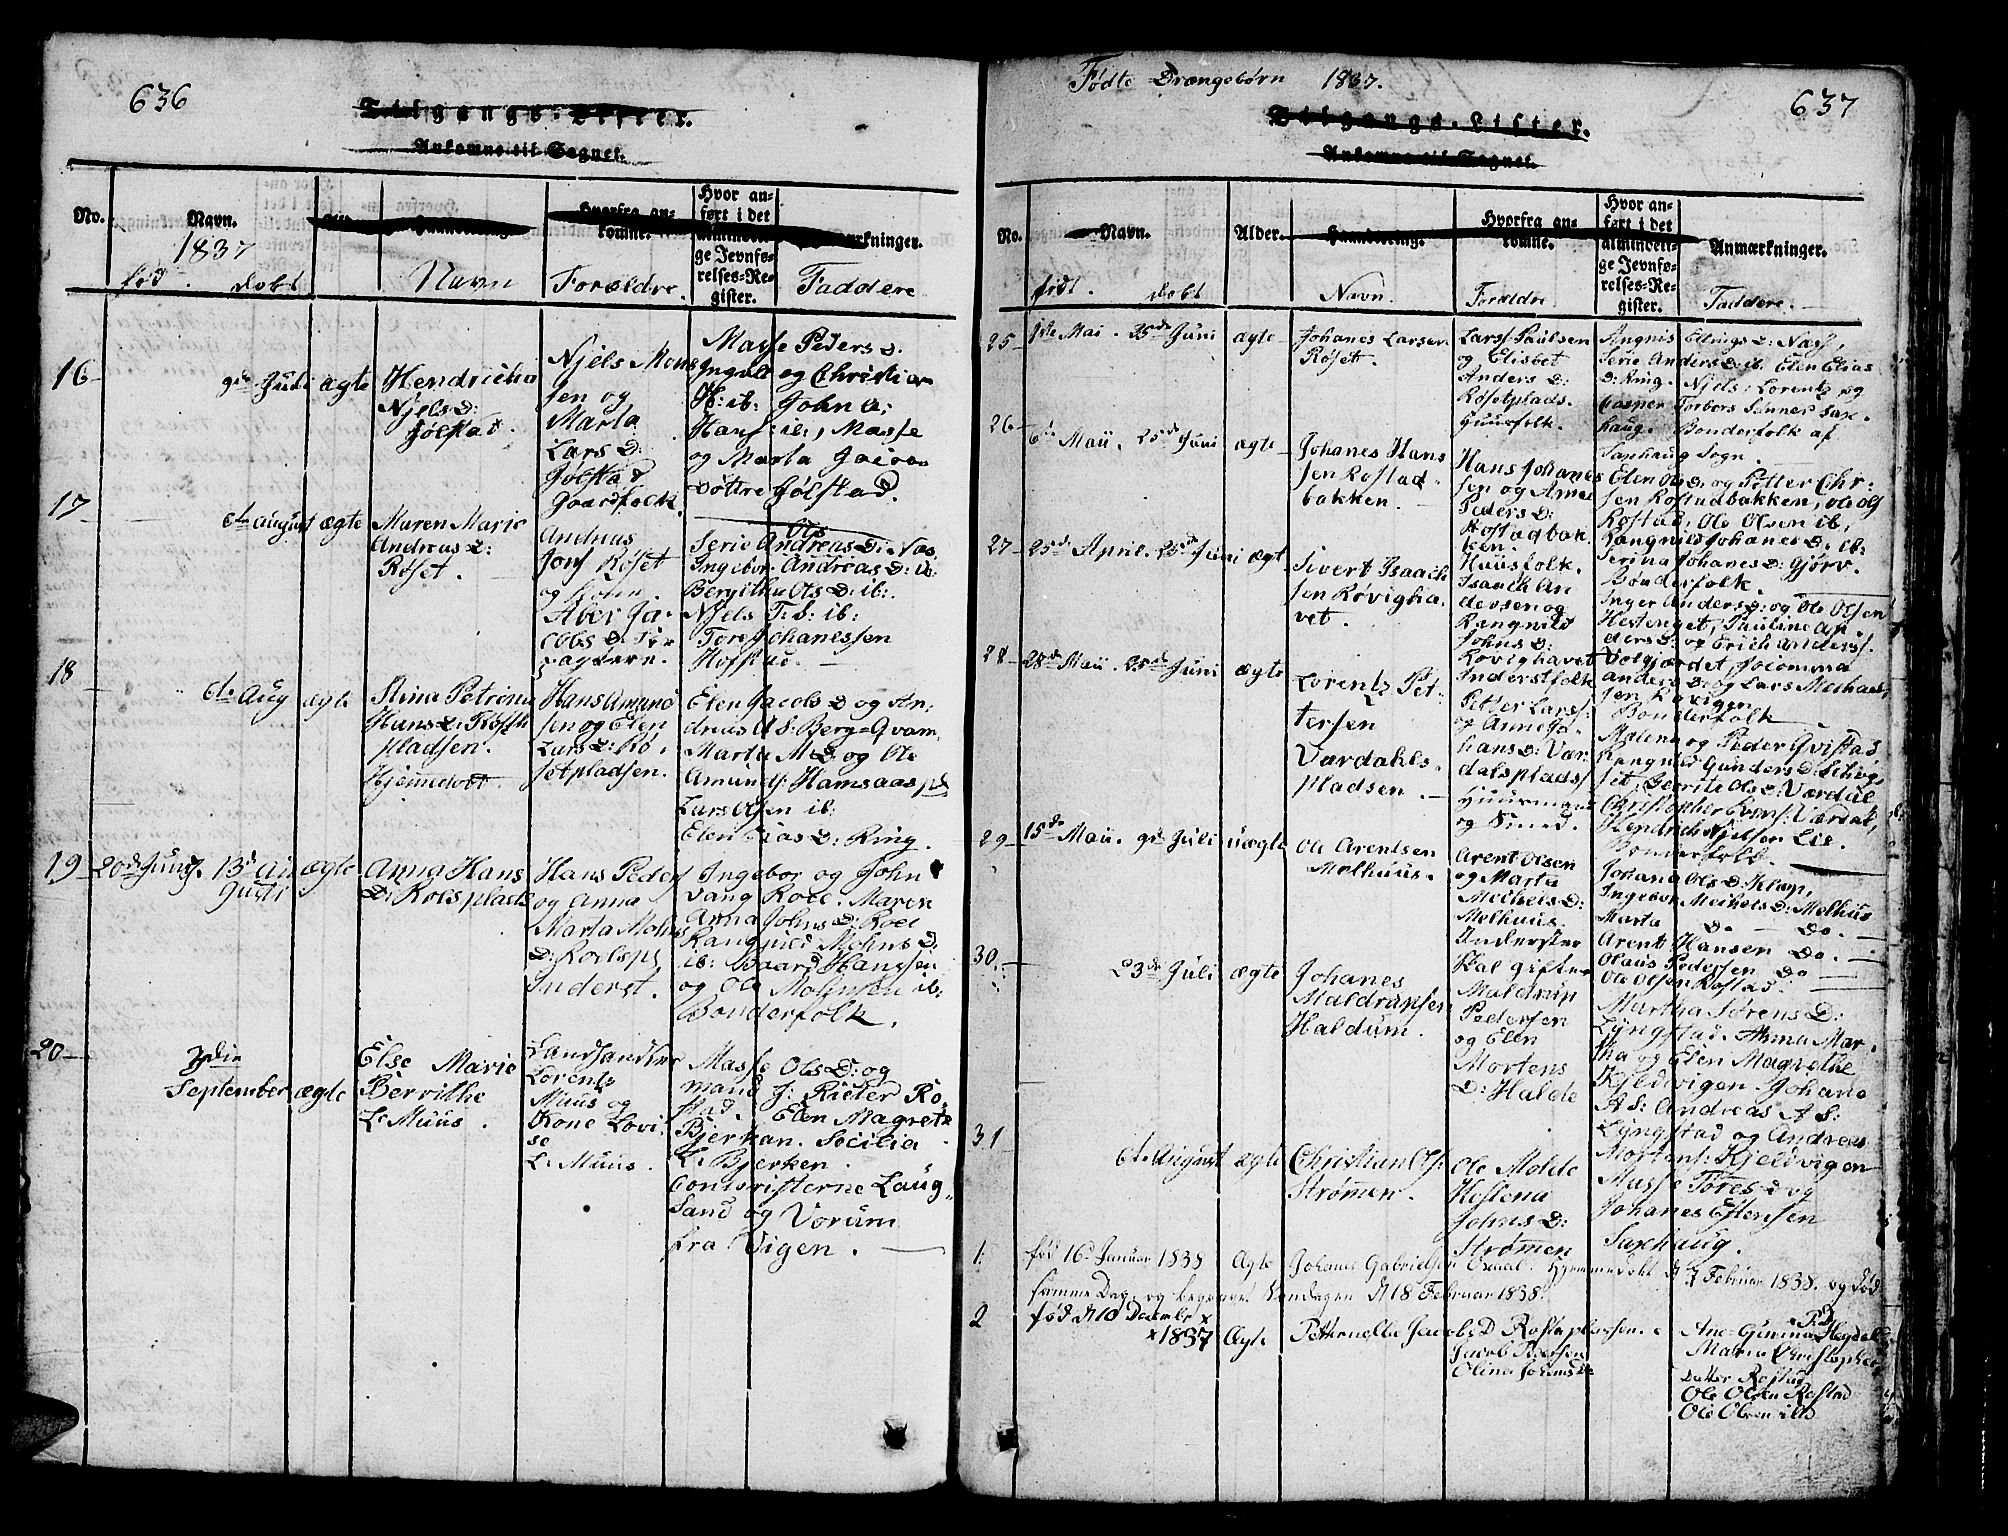 636
Tilgangs-Lister.
Ankomne til Sognet.
No.
Navn.
1837
fød
døbt
Navn
Hvorfra an-
komne.
Forældre.
Hvor an-
ført i det
almindeli-
ge Jevnfø-
relses-Re-
gister.
Faddere
16
9de Juli ægte
Hendricha
Njels D:
Jølstad.
Njels Mons
sen og
Marta
Lars D:
Jølstad
Gaardfolk.
Masse Peders D.
Ingvld og Christian
H: ib: John A:
Hans ib:, Masse
og Marta
Døttre Jølstad.
17
6te August ægte
Maren Marie
Andreas D:
Røset.
Andreas
Jons Røset
og Kone
Aber Ja-
cobs D:
Ols
Serie Andreas D: Næs
Ingebor Andreas D: ib:
Bergithe Ols D: ib:
Njels T: S: ib:
Tore Johanessen
Hofstad.
18
6te Aug ægte
Stina Petrina
Hans D: Røseth
pladsen.
Hjemmedøbt
Hans Amund
sen og Elen
Lars D: Rø,
setpladsen.
Elen Jacobs D og An,
dreas A S: Berg=Qvam,
Marta M D og Ole
Amunds: Hamsaas pd
Lars Olsen ib:
Elen Elias D: Ring.
19
20de Juny. 13de Au
gusti
ægte
Anna Hans
D: Rolsplads
Hans Peders
og Anna
Marta Mohns
D: Roelspl
Inderst.
Ingebor og John
vang Roel. Maren
Anna Johns D: Roel
Rangnild Mohns D:
ib: Baard Hanssen
og Ole Mohnsen ib:
Bonderfolk.
20
3die
September ægte
Else Marie
Bervithe
L: Muus.
Landhandler
Lorents
Muus og
Kone Lovi-
se
L: Muus.
Masse Ols D: og
mand J: Richter Ro,
stad. Elen Magrete
Bjerkan. Secilia
L: Bjerken.
Contoristerne Laug-
sand og Vorum
fra Vigen.
Fødte Drængebørn 1837.
637
Tilgangs-Lister.
Ankomne til Sognet.
No.
Navn.
født.
døbt
Alder.
Haandtering.
Navn.
Hvorfra an-
komne.
Forældre
Hvor an-
ført i det
almindeli-
ge Jevnfø-
relses-Re-
gister.
Anmærkninger.
Faddere.
25
1ste Mai. 25de Juni ægte
Johanes Larsen
Røset.
Lars Paulsen
og Elisbet
Anders D:
Røsetplads.
Huusfolk.
Angnis Ellings D: Næss,
Serie Anders D: ib. Elen Elias
D: Ring. Njels: Lorentz og
Casper Torbers Sønner Sax-
haug. Bonderfolk af
Saxhaug Sogn.
26
6te Maii. 25de Juni ægte
Johanes Hans
sen Rostad-
bakken.
Hans Johanes
sen og Anne
Peders D:
Rostadbak-
ken.
Huusfolk.
Elen Ols D: og Petter Chr:
sen Rostadbakken, Ole Ols
Rostad, Ole Olsen ib,
Rangnild Johanes D: ib:
Serina Johanes D: Gjørv.
Bønderfolk.
27
25de April. 25de Juni ægt
Sivert Isaach
sen Røvigha-
vet.
Isaach An
dersen og
Rangnild
Johns D:
Røvighavet
Inderstfolk
Inger Anders D: og Ole Olsen
Hestenget, Pauline An.
ders D: og Erich Anderss.
Volhjordet, Jocomina
Anders D: og Lars Michaels
sen Røvigen
Bonderfolk
28
28de Maii. 25de Juni ægte
Lorentz Pet-
tersen
Værdahls-
pladsen.
Petter Larss:
og Anne Jo-
hans D: Vær-
dalsplads
Huusmand
og Smed.
Malena og Peder Qvistad
Rangnild Gunders D:
Berite Ols D: Værdal
Christopher Evens: Værdal,
Hendrich Njelsen Lie.
Bonderfolk.
29
15de Maii. 9de Juli uægte
Ole Arentsen
Melhuus.
Arent Olsen
og Marta
Michels D:
Melhuus.
Inderster
skal gifte
Johana Ols D: Klæp,
Ingebor Meihels D: Melhus
Marta Do — Do.
Arent Hansen Do.
Olaus Pedersen Do
Ole Olsen Rostad.
30.
23de Juli ægte
Johanes
Maldransen
Haldum.
Maldran
Pedersen
og Elen
Mortens
D: Halde
Martha Sørens D:
Lyngstad. Anna Mar-
tha og Elen Magrethe
Kjeldvigen Johane
A S: Andreas A S:
Lyngstad og Andreas
Mortens: Kjeldvigen
31
6te August ægte
Christian Ols:
Strømen.
Ole Molde
Helena
Johns D:
Strømen
Masse Tores D og
Johanes Estensen
Saxhaug.
1.
fød 16de Januar 1838 Ægte Johanes Gabrielsen Hjemmedøbt d 7 Februar 1838. og død
samme Dag, og begravet Søndagen d 18 Februar 1838.
2
fød d 10 Decembr x
x 1837 Ægte Petternella Jacobs D Rostapladsen.
Jacob Pedersen
Olina Johans D:
P D
Ane Gurina
Maria Christopher
Datter Rostad
Ole Olsen Rostad
Ole Olsen ibd